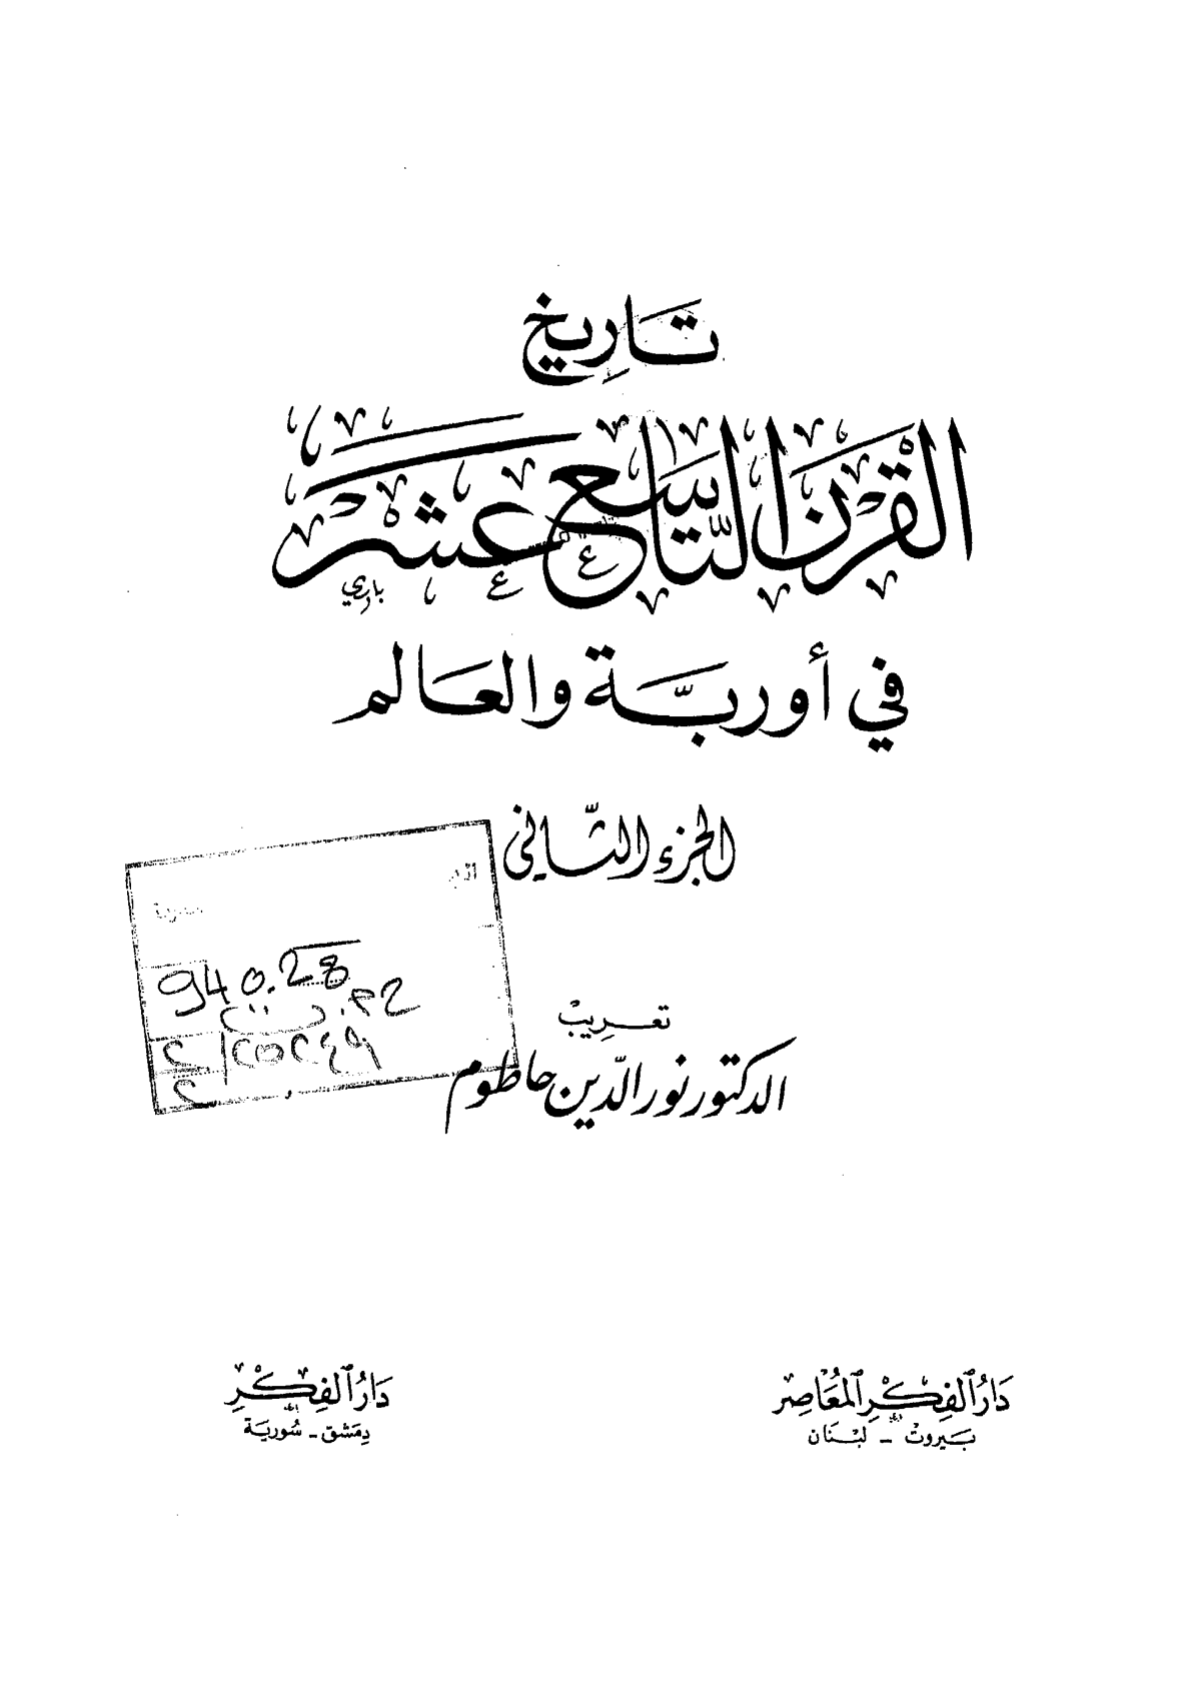 تاريخ
القرن التاسع عشر
في أوربة والعالم
الجزء الثاني
940.28
تعريب
الدكتور نور الدين حاطوم
دَارُ ٱلفِكْرِ ٱلمُعَاصِر
بَيروتْ - لبْنَان
دَارُ ٱلفِكْرِ
دِمَشق - سُورِيَة